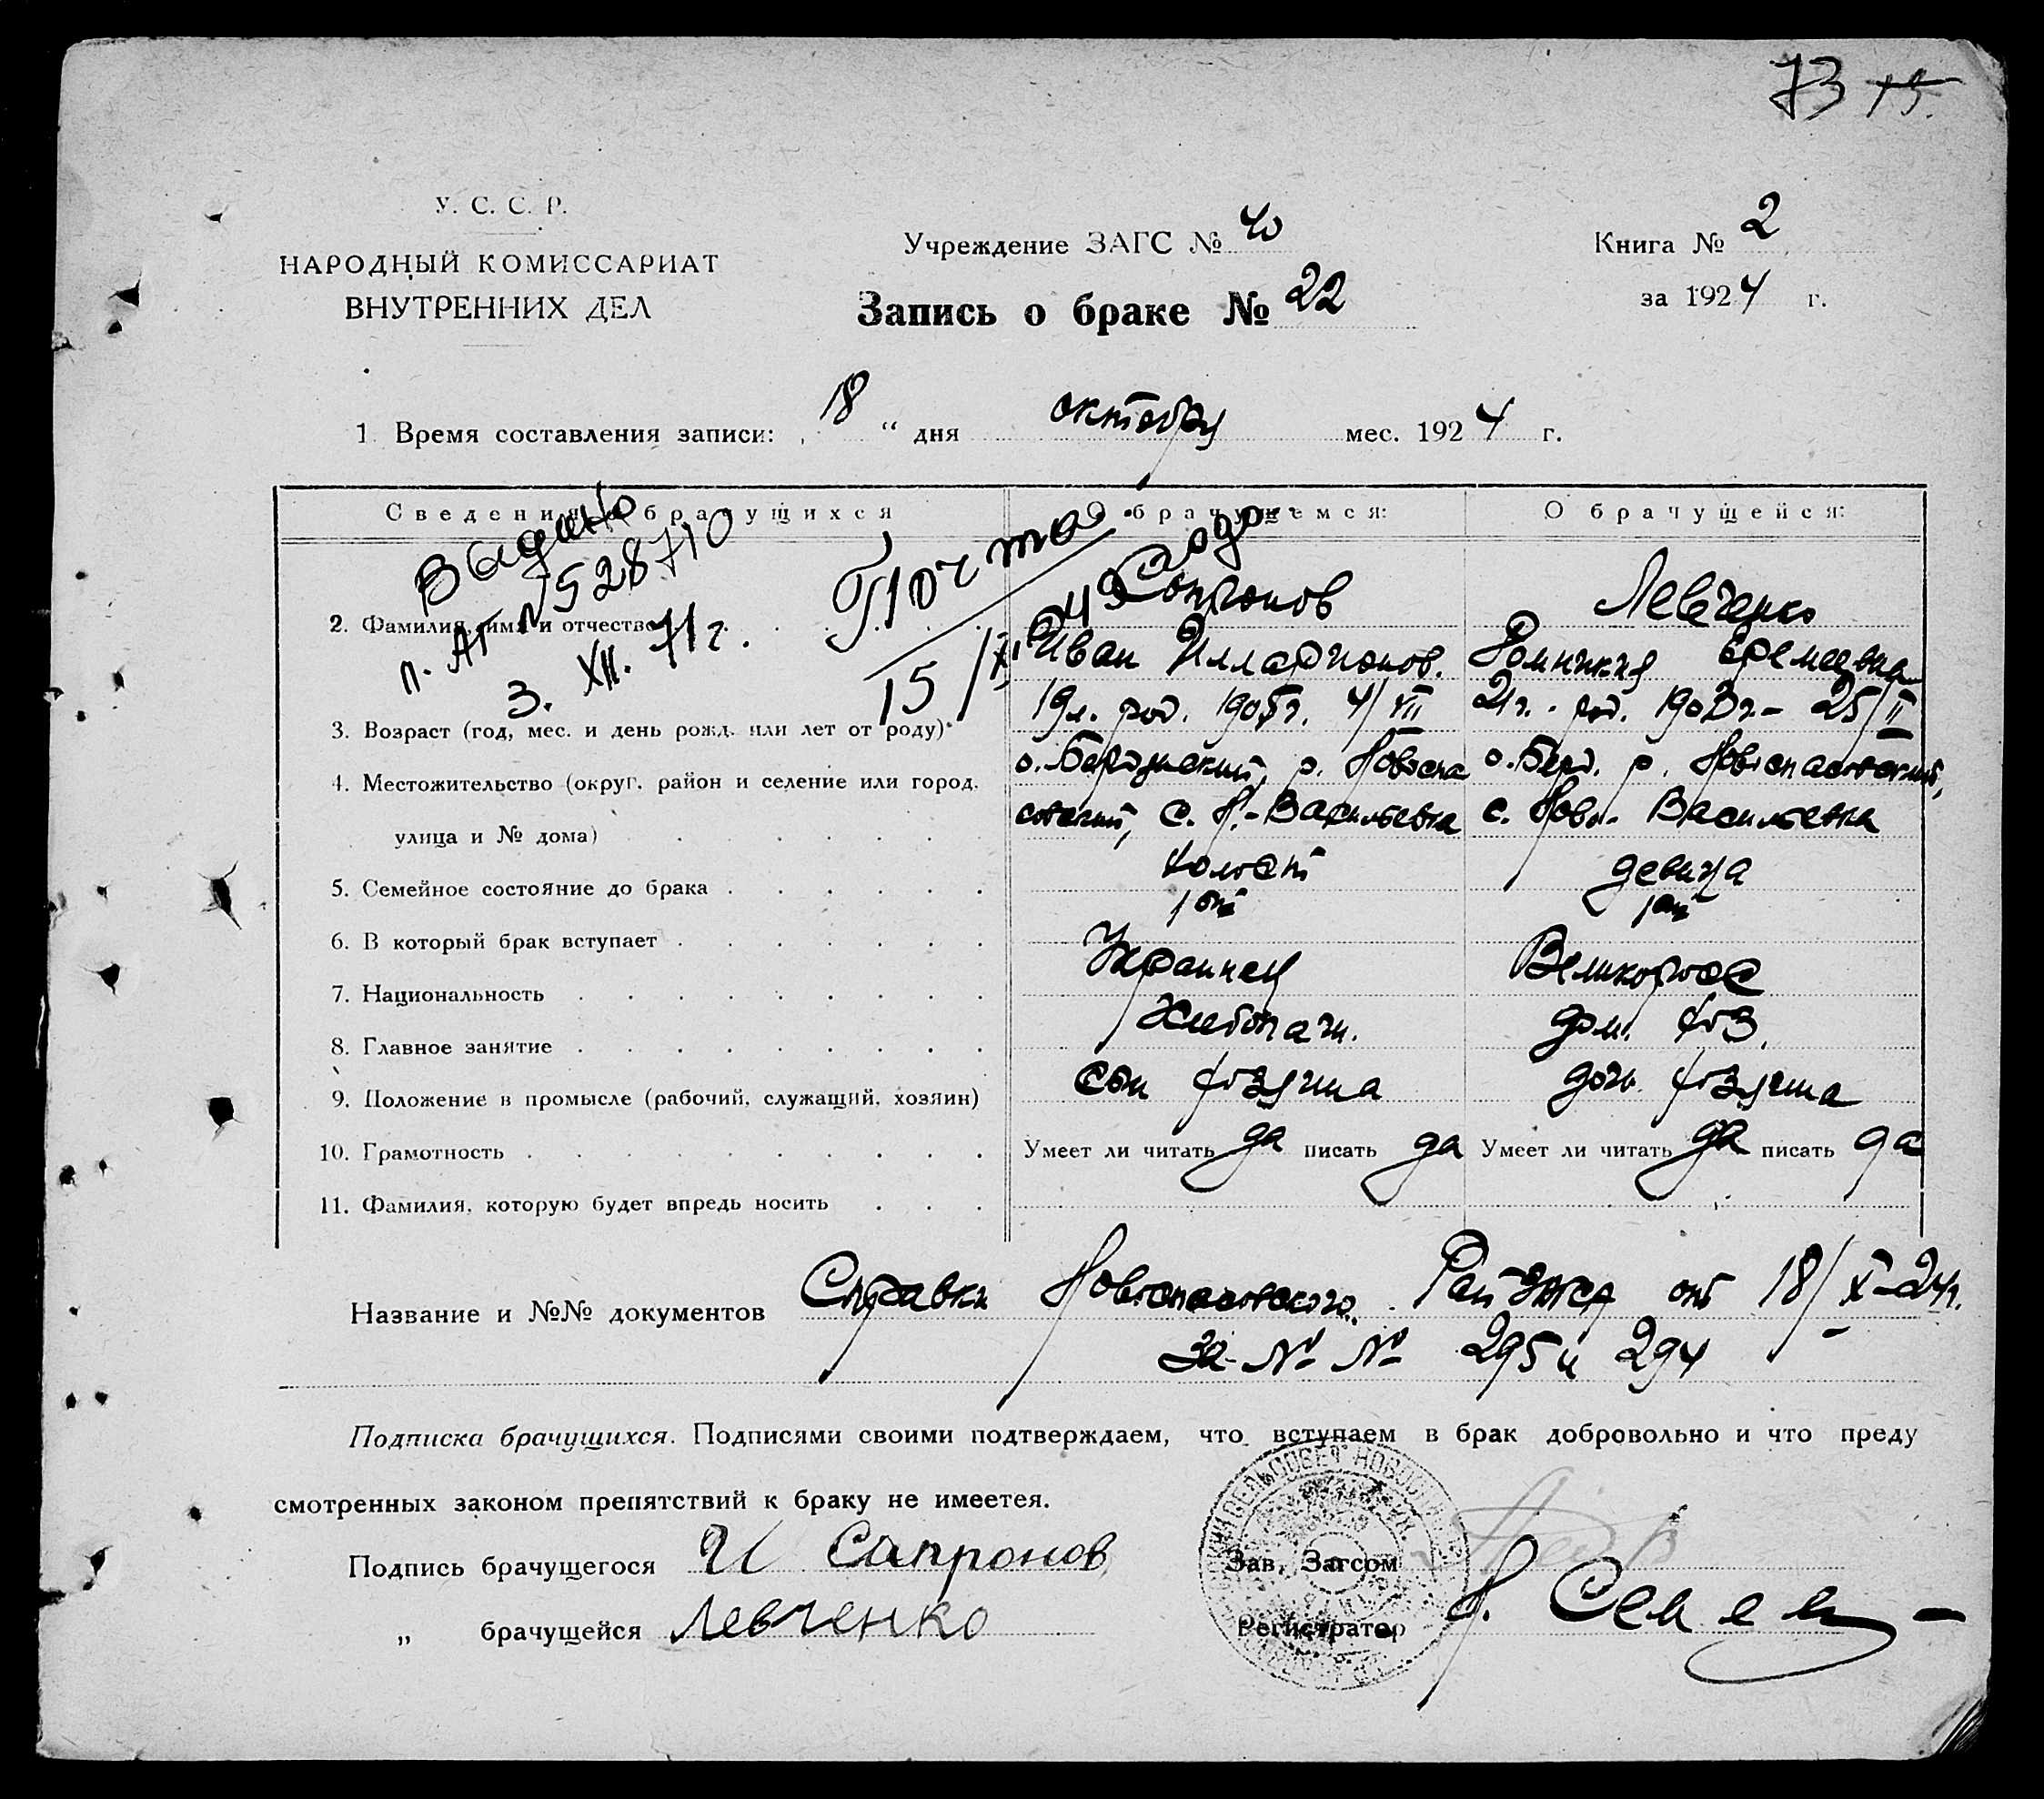 73 15.
У. С. С. Р.
НАРОДНЫЙ КОМИССАРИАТ
ВНУТРЕННИХ ДЕЛ
Учреждение ЗАГС № 40
Запись о браке № 22
Книга № 2
за 1924 г.
1. Время составления записи: „18“ дня октября мес. 1924 г.
Сведения о брачущихся
О брачущемся:
О брачущейся:
Выдано
п. АГ № 528710
3. XII. 71 г.
Почта
15/XI
2. Фамилия, имя и отчество
Сопронов
Иван Илларионов.
Левченко
Еремеевна
3. Возраст (год, мес. и день рожд. или лет от роду)
19 л. род. 1905 г. 4/VII
21 г. род. 1903 г. - 25/II
4. Местожительство (округ, район и селение или город,
улица и № дома)
о. Бердянский, р. Новоспа
совский, с. Н.-Васильевка
о. Берд. р. Новоспасовский,
с. Ново-Васильевка
5. Семейное состояние до брака
холост
девица
6. В который брак вступает
1ый
1ый
7. Национальность
Украинец
Великорос
8. Главное занятие
Хлебопаш.
дом. хоз.
9. Положение в промысле (рабочий, служащий, хозяин)
сын хозяина
дочь хозяина
10. Грамотность
Умеет ли читать да писать да
Умеет ли читать да писать да
11. Фамилия, которую будет впредь носить
Название и №№ документов Справки Новоспасовского от 18/X-24 г.
за №№ 295 и 294
Подписка брачущихся. Подписями своими подтверждаем, что вступаем в брак добровольно и что преду
смотренных законом препятствий к браку не имеетея.
Подпись брачущегося И Сапронов
„ брачущейся Левченко
Зав. Загсом
Регистратор